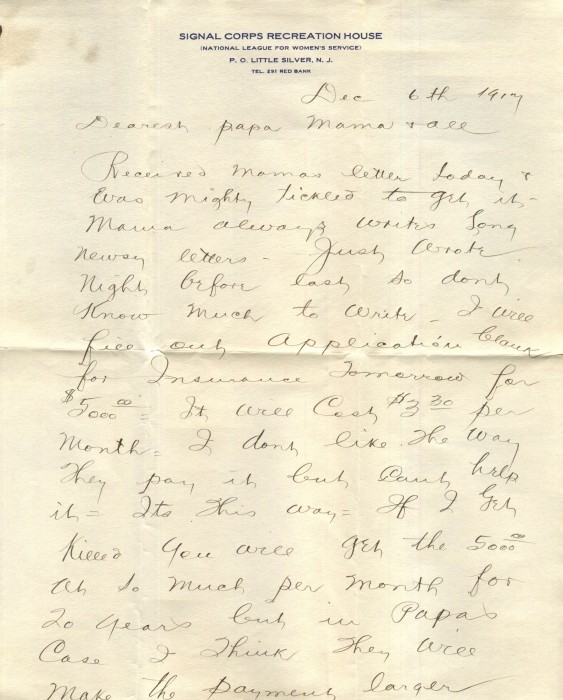 SIGNAL CORPS RECREATION HOUSE
(NATIONAL LEAGUE FOR WOMEN'S SERVICE)
P. O. LITTLE SILVER, N. J.
TEL. 291 RED BANK
Dec 6th 1917
Dearest papa Mama & all
Received Mamas letter today &
Was mighty tickled to get it-
Mama always writes long
newsy letters - Just Wrote
Night before last so dont
Know Much to write - I will
fill out Application blank
for Insurance Tomorrow for
$5000.00 = It will Cost $3.30 per
Month = I dont like The Way
They pay it but Cant help
it = Its This way = If I Get
Killed You will get the 5000.00
At so Much per Month for
20 years but in Papas
Case I Think They Will
Make the payment larger